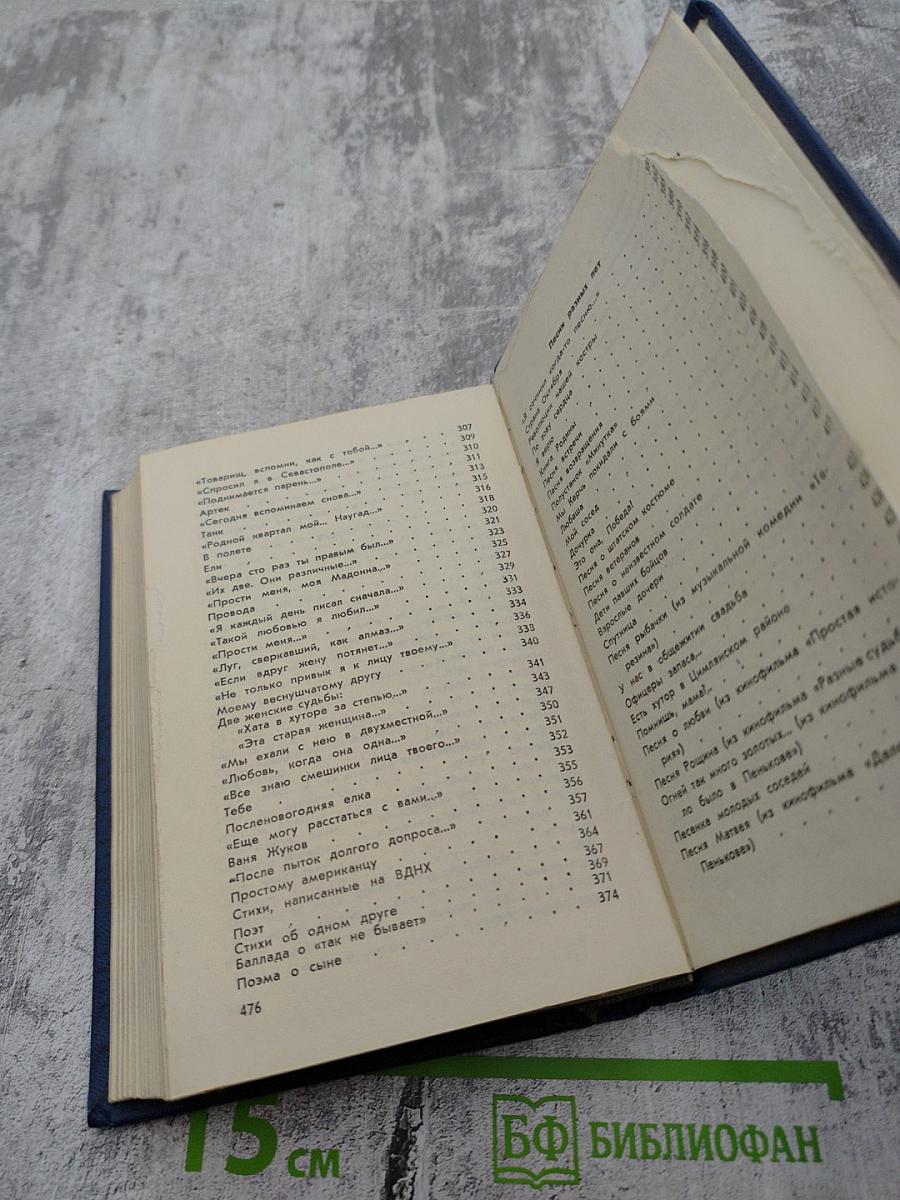 «Товарищ, вспомни, как с тобой...» 307
«Спросил я в Севастополе...» 309
«Поднимается парень...» 310
Артек 311
«Сегодня вспоминаем снова...» 313
Танк 315
«Родной квартал мой... Наугад...» 316
В полете 318
Ели 320
«Вчера сто раз ты правым был...» 321
«Их две. Они различные...» 323
«Прости меня, моя Мадонна...» 325
Провода 327
«Я каждый день писал сначала...» 329
«Такой любовью я любил...» 331
«Прости меня...» 333
«Луг, сверкавший, как алмаз...» 334
«Если вдруг жену потянет...» 336
«Не только привык я к лицу твоему...» 338
Моему веснушчатому другу 340
Две женские судьбы:
«Хата в хуторе за степью...» 341
«Эта старая женщина...» 343
«Мы ехали с нею в двухместной...» 347
«Любовь, когда она одна...» 350
«Все знаю смешинки лица твоего...» 351
Тебе 352
Посленовогодняя елка 353
«Еще могу расстаться с вами...» 355
Ваня Жуков 356
«После пыток долгого допроса...» 357
Простому американцу 361
Стихи, написанные на ВДНХ 364
Поэт 367
Стихи об одном друге 369
Баллада о «так не бывает» 371
Поэма о сыне 374
476
Песни разных лет
«Я сочинил когда-то песню...»
Страна Октября
Революции нашей костры
По зову сердца
Я верю
Книга Родины
Песня встречи
Песня возвращения
Полустанок «Минутка»
Мы Керчь покидали с боями
Любаша
Мой сосед
Дочурка
Это она, Победа!
Песня о штатском костюме
Песня ветеранов
Песня о неизвестном солдате
Дети павших бойцов
Взрослые дочери
Спутница
Песня рыбачки (из музыкальной комедии «Те-
резина»)
У нас в общежитии свадьба
Офицеры запаса...
Есть хутор в Цимлянском районе
Помнишь, мама!..
Песня о любви (из кинофильма «Простая исто-
рия»)
Песня Рощина (из кинофильма «Разные судьбы
Огней так много золотых... (из кинофильма
ло было в Пенькове»)
Песенка молодых соседей
Песня Матвея (из кинофильма «Дело
Пенькове»)
15 см
БФ БИБЛИОФАН